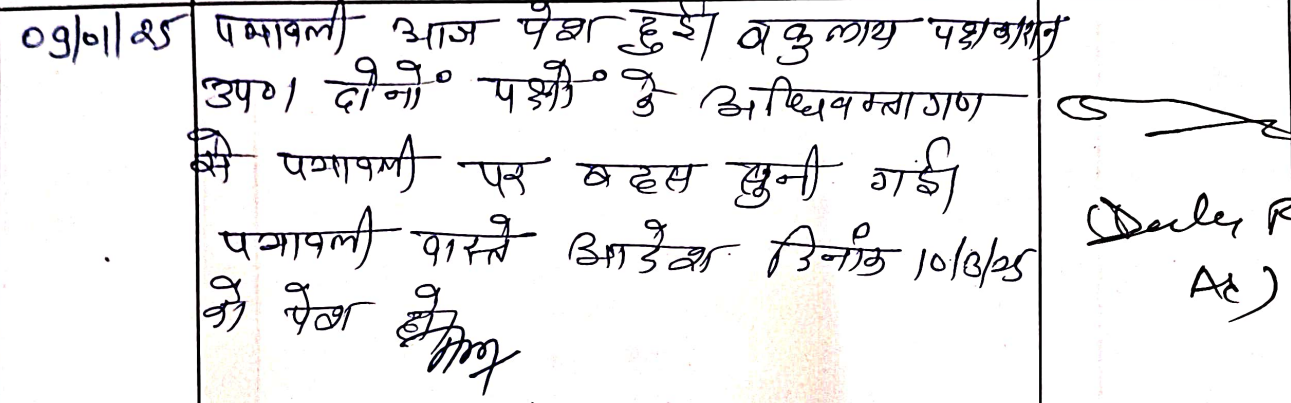 09/01/25 पत्रावली आज पेश हुई। वकुलाय पक्षकारान
उप०। दोनों पक्षों के अधिवक्तागण
से पत्रावली पर बहस सुनी गई।
पत्रावली वास्ते आदेश दिनांक 10/3/25
को पेश हो